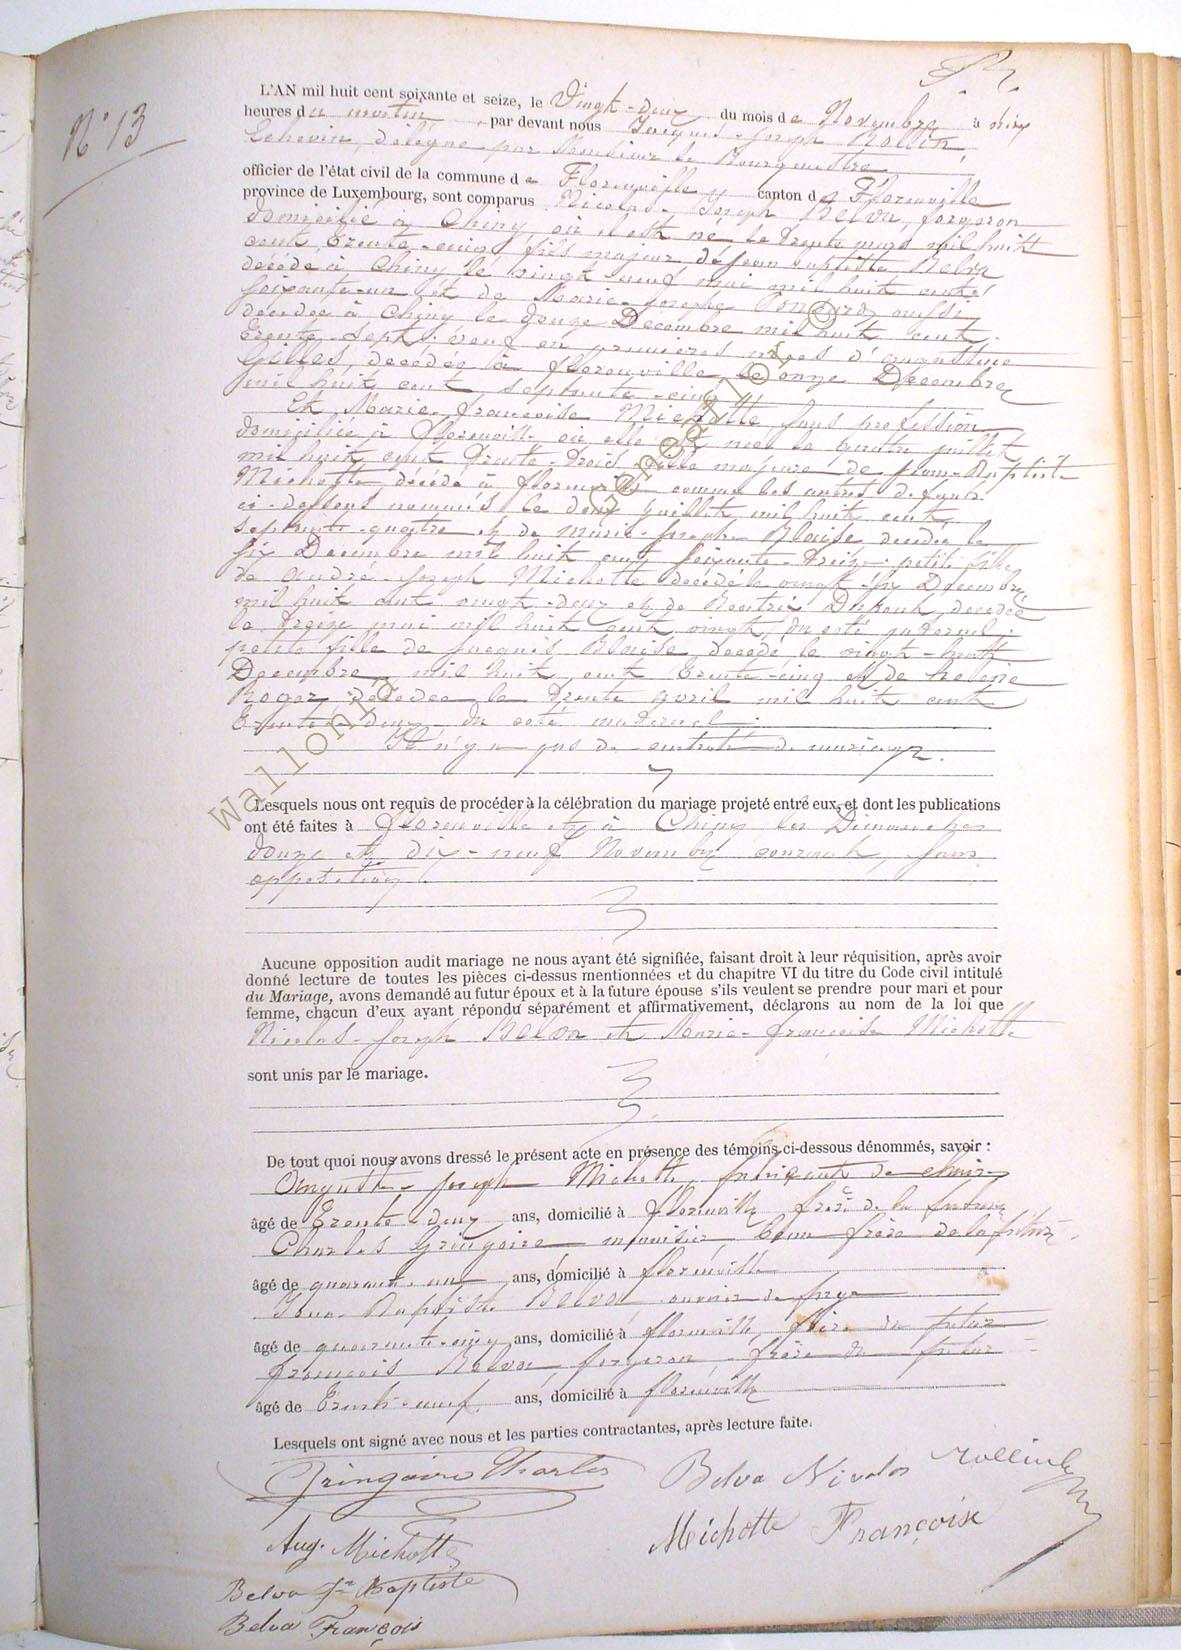 N° 13
L'AN mil huit cent soixante et seize, le Vingt-deux du mois de Novembre à onze
heures du matin, par devant nous Jacques-Joseph Rollin,
Echevin, délégué par Monsieur le Bourgmestre
officier de l'état civil de la commune de Florenville canton de Florenville
province de Luxembourg, sont comparus Nicolas-Joseph Belva, forgeron
domicilié à Chiny, où il est né le trente mars mil huit
cent trente-cinq, fils majeur de Jean Baptiste Belva
décédé à Chiny le vingt neuf mai mil huit cent
soixante-un et de Marie-Josephe aussi
décédée à Chiny le douze Decembre mil huit cent
trente-sept; veuf en premières noces d'Augustine
Gilles, décédée à Florenville le onze Décembre
mil huit cent septante-cinq
Et Marie-Françoise Michotte sans profession
domiciliée à Florenville où elle est née le quatre juillet
mil huit cent trente-trois, fille majeure de Jean-Baptiste
Michotte, décédé à Florenville comme les autres defunts
ci-dessous nommés le deux juillet mil huit cent
septante-quatre et de Marie-Josephe Blaise décédée le
six Decembre mil huit cent soixante-treize; petite fille
de André-Joseph Michotte decédé le vingt-six Decembre
mil huit cent vingt-deux et de Beatrix Dupont, decedée
le treize mai mil huit cent vingt, du coté paternel;
petite fille de Jacques Blaise, decedé le vingt-huit
Decembre mil huit cent trente-cinq et de Helène
Roger decedée le trente avril mil huit cent
trente-deux du coté maternel.
Il n'y a pas de contrat de mariage.
Lesquels nous ont requis de procéder à la célébration du mariage projeté entre eux, et dont les publications
ont été faites à Florenville et à Chiny les Dimanches
douze et dix-neuf Novembre courant, sans
opposition.
Aucune opposition audit mariage ne nous ayant été signifiée, faisant droit à leur réquisition, après avoir
donné lecture de toutes les pièces ci-dessus mentionnées et du chapitre VI du titre du Code civil intitulé
du Mariage, avons demandé au futur époux et à la future épouse s'ils veulent se prendre pour mari et pour
femme, chacun d'eux ayant répondu séparément et affirmativement, déclarons au nom de la loi que
Nicolas-Joseph Belva et Marie-Françoise Michotte
sont unis par le mariage.
De tout quoi nous avons dressé le présent acte en présence des témoins ci-dessous dénommés, savoir :
Auguste-Joseph Michotte, fabriquant de chaises
âgé de trente-deux ans, domicilié à Florenville frère de la future
Charles Gringoire menuisier, beau frère de la future
âgé de quarante-un ans, domicilié à Florenville
Jean-Baptiste Belva ouvrier de forge
âgé de quarante-cinq ans, domicilié à Florenville, frère du futur
François Belva, forgeron, frère du futur
âgé de trente-neuf ans, domicilié à Florenville
Lesquels ont signé avec nous et les parties contractantes, après lecture faite.
Gringoire Charles
Belva Nicolas
Rollin
Aug. Michotte
Michotte Françoise
Belva Jn Baptiste
Belva François